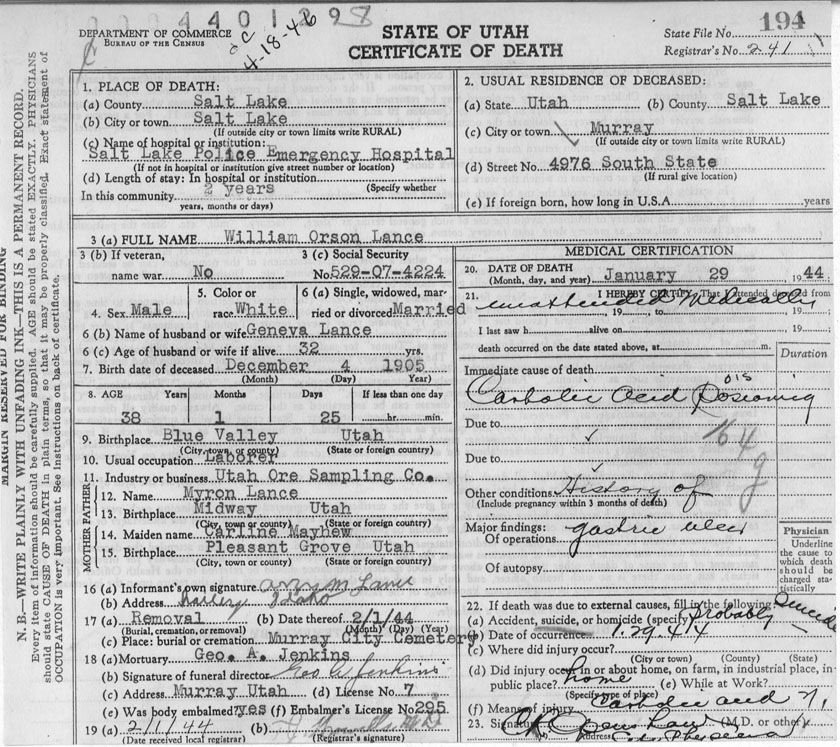 4401298
4-18-46
DEPARTMENT OF COMMERCE
BUREAU OF THE CENSUS
STATE OF UTAH
CERTIFICATE OF DEATH
State File No. 194
Registrar's No. 241
MARGIN RESERVED FOR BINDING
N. B.—WRITE PLAINLY WITH UNFADING INK—THIS IS A PERMANENT RECORD.
Every item of information should be carefully supplied. AGE should be stated EXACTLY. PHYSICIANS
should state CAUSE OF DEATH in plain terms, so that it may be properly classified. Exact statement of
OCCUPATION is very important. See instructions on back of certificate.
1. PLACE OF DEATH:
(a) County Salt Lake
(b) City or town Salt Lake
(If outside city or town limits write RURAL)
(c) Name of hospital or institution:
Salt Lake Police Emergency Hospital
(If not in hospital or institution give street number or location)
(d) Length of stay: In hospital or institution
(Specify whether
In this community 2 years
years, months or days)
2. USUAL RESIDENCE OF DECEASED:
(a) State Utah (b) County Salt Lake
(c) City or town Murray
(If outside city or town limits write RURAL)
(d) Street No. 4976 South State
(If rural give location)
(e) If foreign born, how long in U.S.A. years
3 (a) FULL NAME William Orson Lance
3 (b) If veteran, name war No
3 (c) Social Security No. 529-07-4224
4. Sex Male
5. Color or race White
6 (a) Single, widowed, married or divorced Married
6 (b) Name of husband or wife Geneva Lance
6 (c) Age of husband or wife if alive 32 yrs.
7. Birth date of deceased December 4 1905
(Month) (Day) (Year)
8. AGE Years Months Days If less than one day
38 1 25 hr. min.
9. Birthplace Blue Valley Utah
(City, town, or county) (State or foreign country)
10. Usual occupation Laborer
11. Industry or business Utah Ore Sampling Co.
FATHER
12. Name Myron Lance
13. Birthplace Midway Utah
(City, town or county) (State or foreign country)
MOTHER
14. Maiden name Carline Mayhew
15. Birthplace Pleasant Grove Utah
(City, town or county) (State or foreign country)
16 (a) Informant's own signature Lance
(b) Address Idaho
17 (a) Removal (b) Date thereof 2/1/44
(Burial, cremation, or removal) (Month) (Day) (Year)
(c) Place: burial or cremation Murray City Cemetery
18 (a) Mortuary Geo. A. Jenkins
(b) Signature of funeral director Geo A Jenkins
(c) Address Murray Utah (d) License No. 7
(e) Was body embalmed? yes (f) Embalmer's License No. 295
19 (a) 2/1/44 (b)
(Date received local registrar) (Registrar's signature)
MEDICAL CERTIFICATION
20. DATE OF DEATH
(Month, day, and year) January 29 1944:
21. I HEREBY CERTIFY, That I attended deceased from
unattended Medically
19 to 19
I last saw h alive on 19
death occurred on the date stated above, at m.
Duration
Immediate cause of death
Carbolic Acid Poisoning
Due to
164
g
Due to
Other conditions History of
(Include pregnancy within 3 months of death)
Major findings: gastric ulcer
Of operations
Of autopsy
Physician
Underline
the cause to
which death
should be
charged sta-
tistically
22. If death was due to external causes, fill in the following:
(a) Accident, suicide, or homicide (specify) Probably Suicide
(b) Date of occurrence 1.29.44
(c) Where did injury occur?
(City or town) (County) (State)
(d) Did injury occur in or about home, on farm, in industrial place, in
public place? home (e) While at Work?
(Specify type of place)
(f) Means of injury Carbolic acid
23. Signature (M.D. or other)
Address